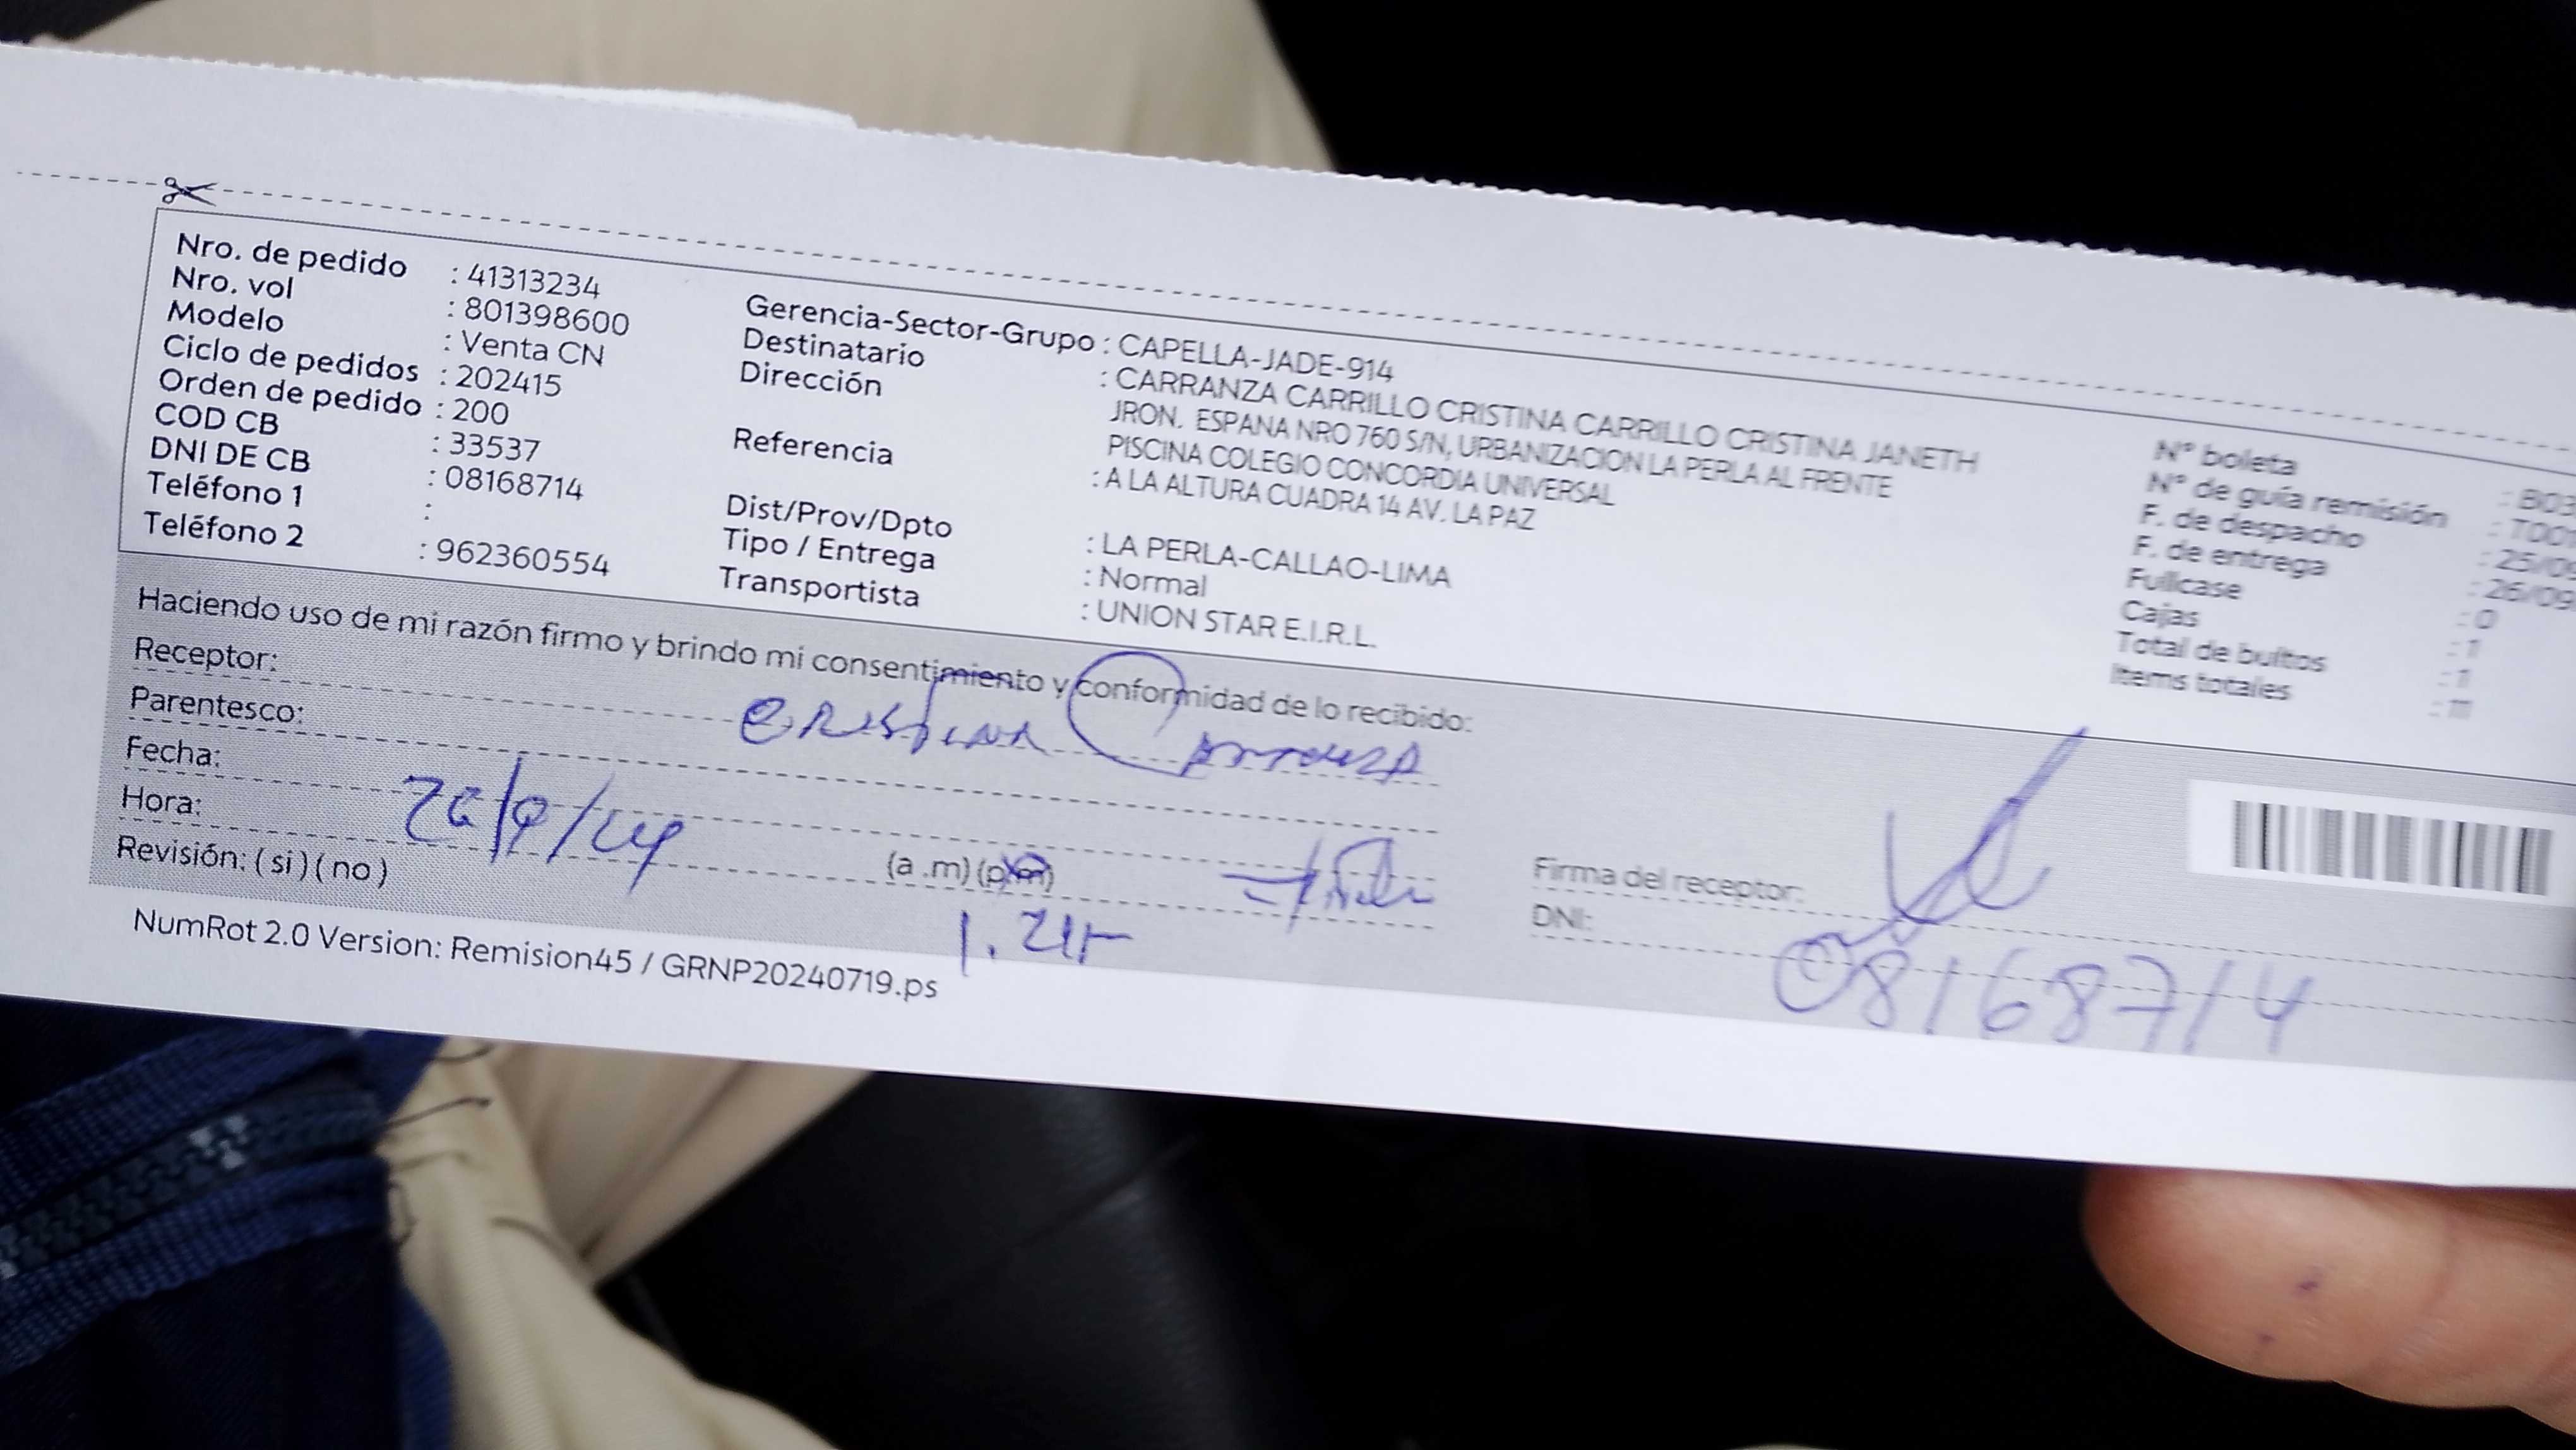 Nro. de pedido : 41313234
Nro. vol : 801398600
Modelo : Venta CN
Ciclo de pedidos : 202415
Orden de pedido : 200
COD CB : 33537
DNI DE CB : 08168714
Teléfono 1 :
Teléfono 2 : 962360554
Gerencia-Sector-Grupo : CAPELLA-JADE-914
Destinatario : CARRANZA CARRILLO CRISTINA CARRILLO CRISTINA JANETH
Dirección JRON. ESPANA NRO 760 S/N, URBANIZACION LA PERLA AL FRENTE
PISCINA COLEGIO CONCORDIA UNIVERSAL
Referencia : A LA ALTURA CUADRA 14 AV. LA PAZ
Dist/Prov/Dpto : LA PERLA-CALLAO-LIMA
Tipo / Entrega : Normal
Transportista : UNION STAR E.I.R.L.
N° boleta : B03
N° de guía remisión : T001
F. de despacho : 25/09
F. de entrega : 26/09
Fullcase : 0
Cajas : 1
Total de bultos : 1
Items totales : 11
Haciendo uso de mi razón firmo y brindo mi consentimiento y conformidad de lo recibido:
Receptor: CRISTINA
Parentesco:
Fecha: 26/9/24
Hora: (a .m) (p.m)
Revisión: ( si ) ( no )
Firma del receptor:
DNI: 08168714
NumRot 2.0 Version: Remision45 / GRNP20240719.ps